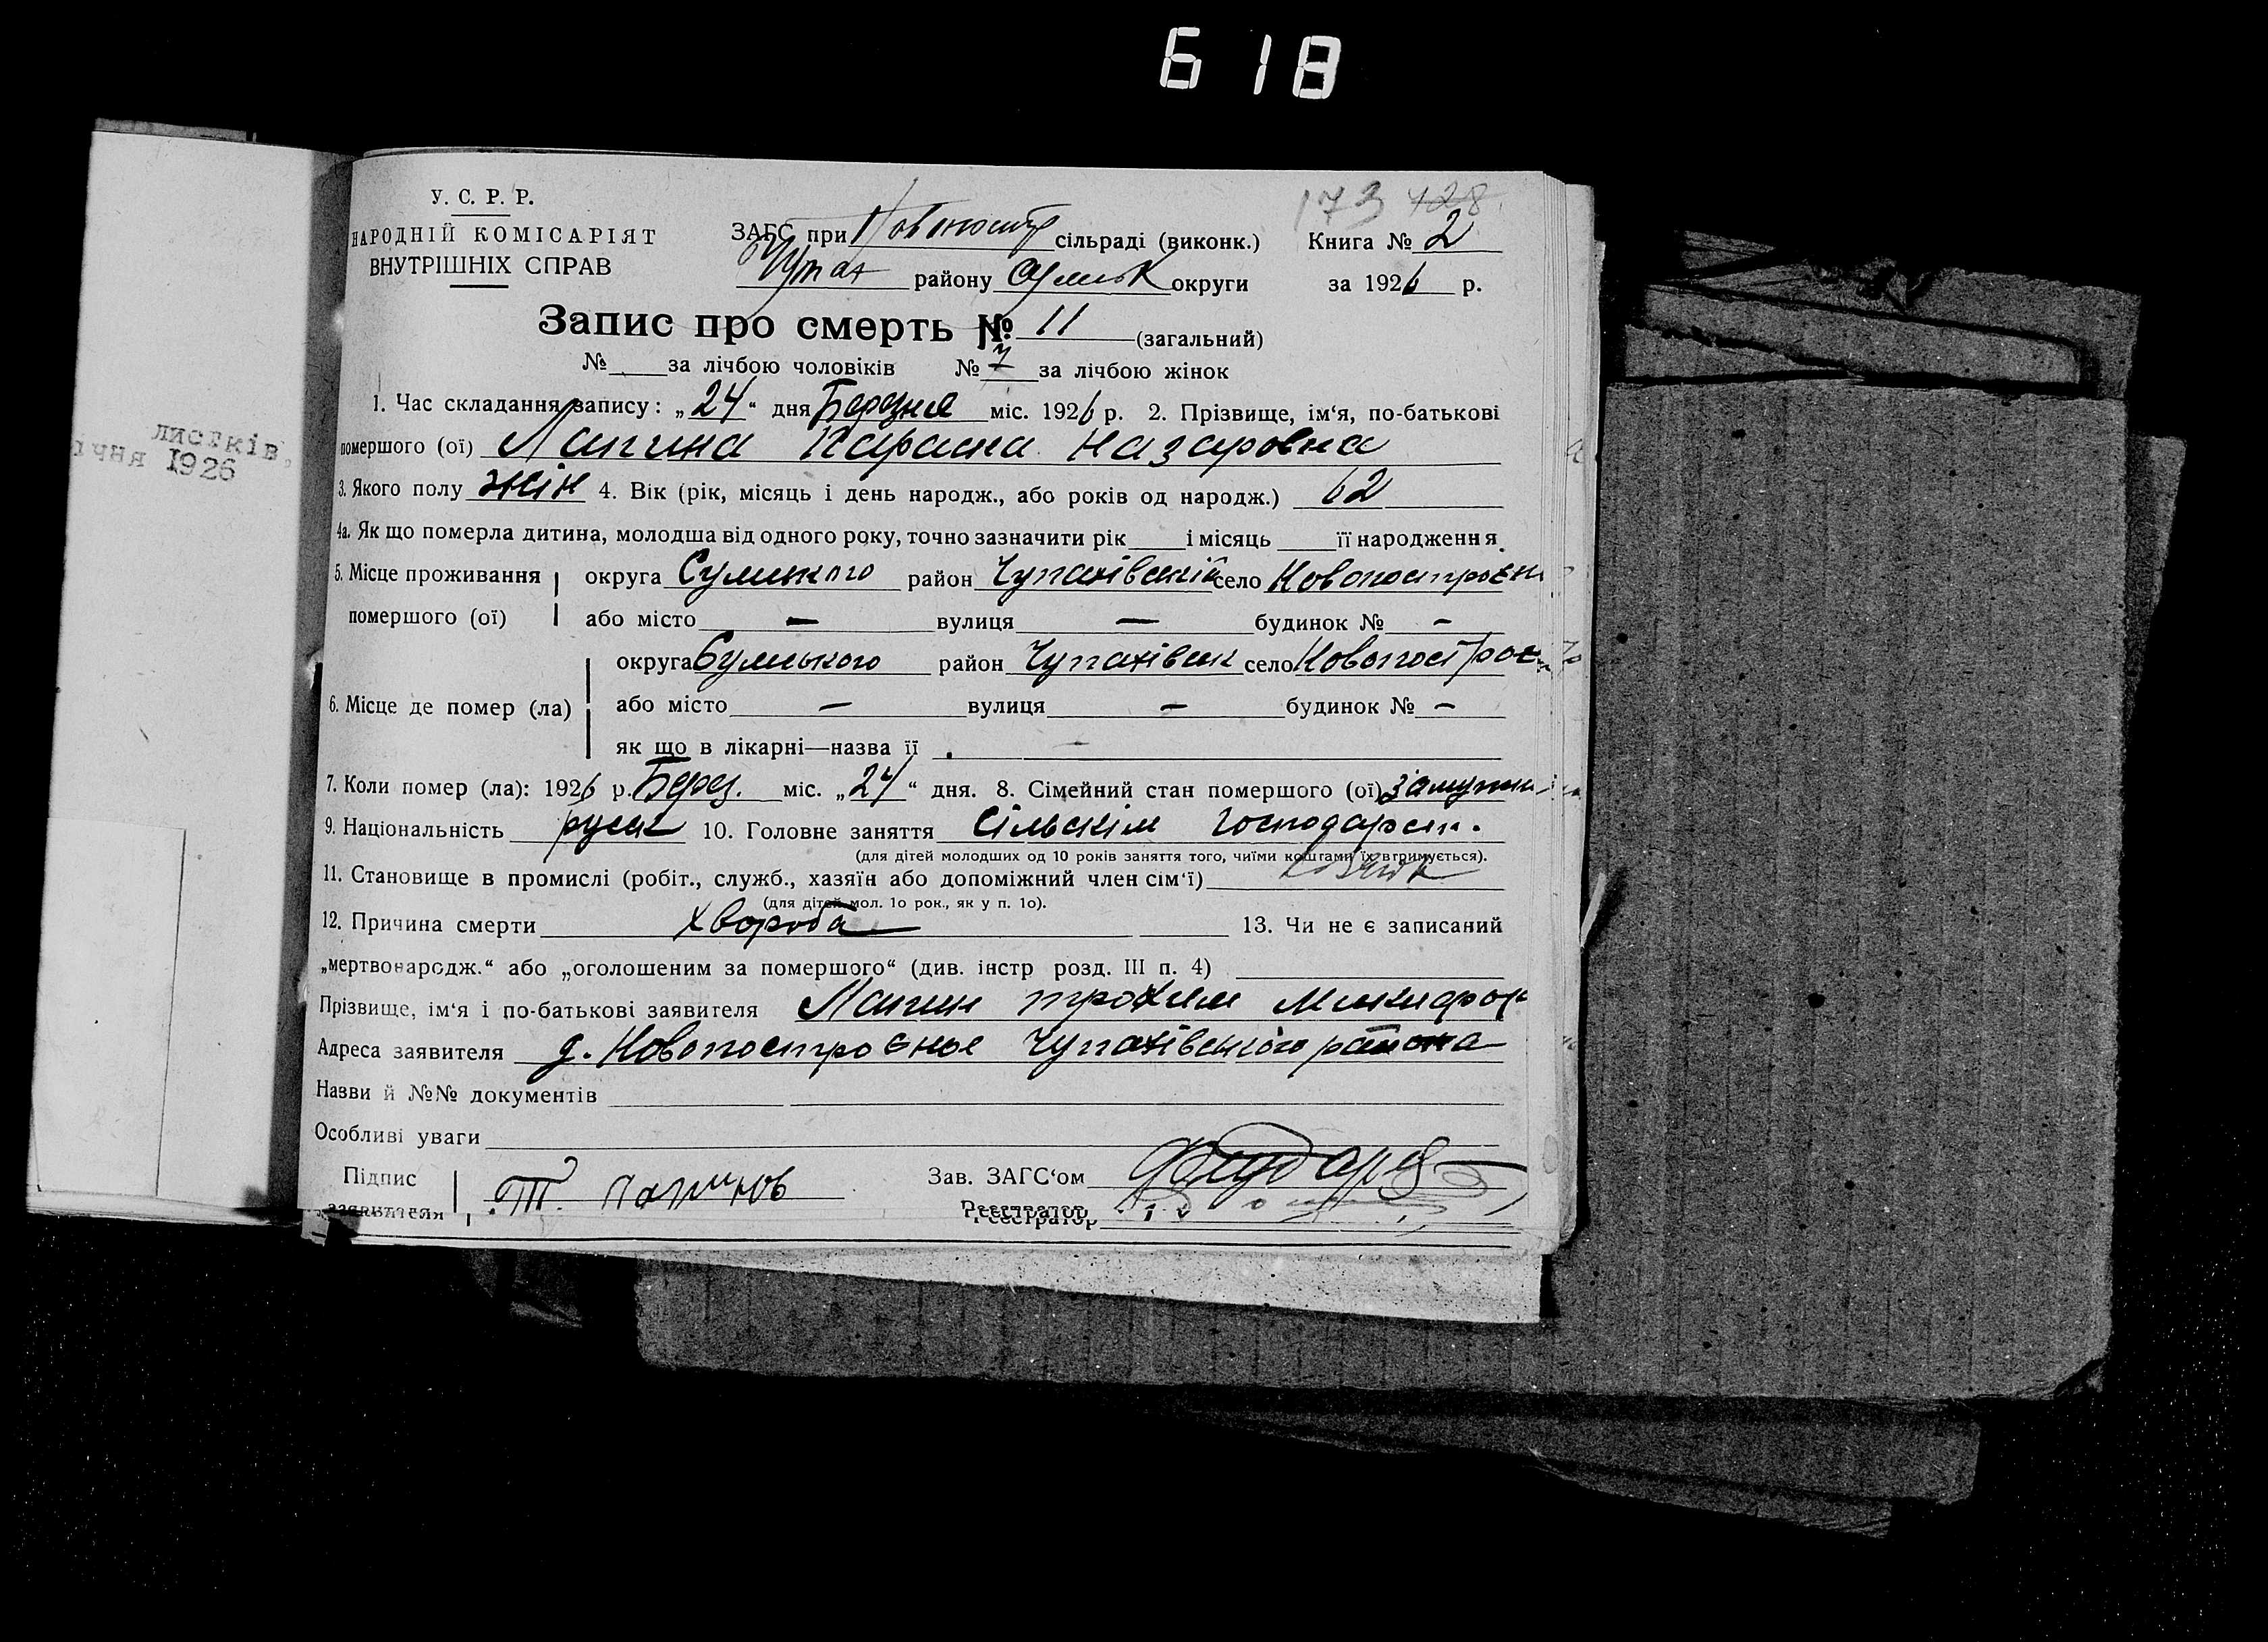 618
листків,
ічня 1926
173 128
У. С. Р. Р.
НАРОДНІЙ КОМІСАРІЯТ
ВНУТРІШНІХ СПРАВ
ЗАГС при Новопостр сільраді (виконк.) Книга № 2
Чупах району Сумськ округи за 1926 р.
Запис про смерть № 11 (загальний)
№ за лічбою чоловіків № 7 за лічбою жінок
1. Час складання запису: „24“ дня Березня міс. 1926 р. 2. Прізвище, ім‘я, по-батькові
помершого (ої) Лапина Параска Назаровна
3. Якого полу жін 4. Вік (рік, місяць і день народж., або років од народж.) 62
4а. Як що померла дитина, молодша від одного року, точно зазначити рік і місяць її народження.
5. Місце проживання округа Сумського район Чупахівський село Новопостроєн
помершого (ої) або місто — вулиця — будинок № -
округа Сумського район Чупахівськ село Новопостроє
6. Місце де помер (ла) або місто — вулиця - будинок № -
як що в лікарні—назва її
7. Коли помер (ла): 1926 р. Берез. міс. „24“ дня. 8. Сімейний стан помершого (ої) замужн
9. Національність руськ 10. Головне заняття Сільскім господарст.
(для дітей молодших од 10 років заняття того, чиїми коштами їх втримується).
11. Становище в промислі (робіт., служб., хазяїн або допоміжний член сім‘ї)
(для дітей мол. 1о рок., як у п. 1о).
12. Причина смерти хвороба 13. Чи не є записаний
„мертвонародж.“ або „оголошеним за помершого“ (див. інстр розд. III п. 4)
Прізвище, ім‘я і по-батькові заявителя Лапин Трохим Микифор
Адреса заявителя д. Новопостроєное Чупахівського района
Назви й №№ документів
Особливі уваги
Підпис Т. Лапинов Зав. ЗАГС‘ом
заявителя Реєстратор
Реєстратор